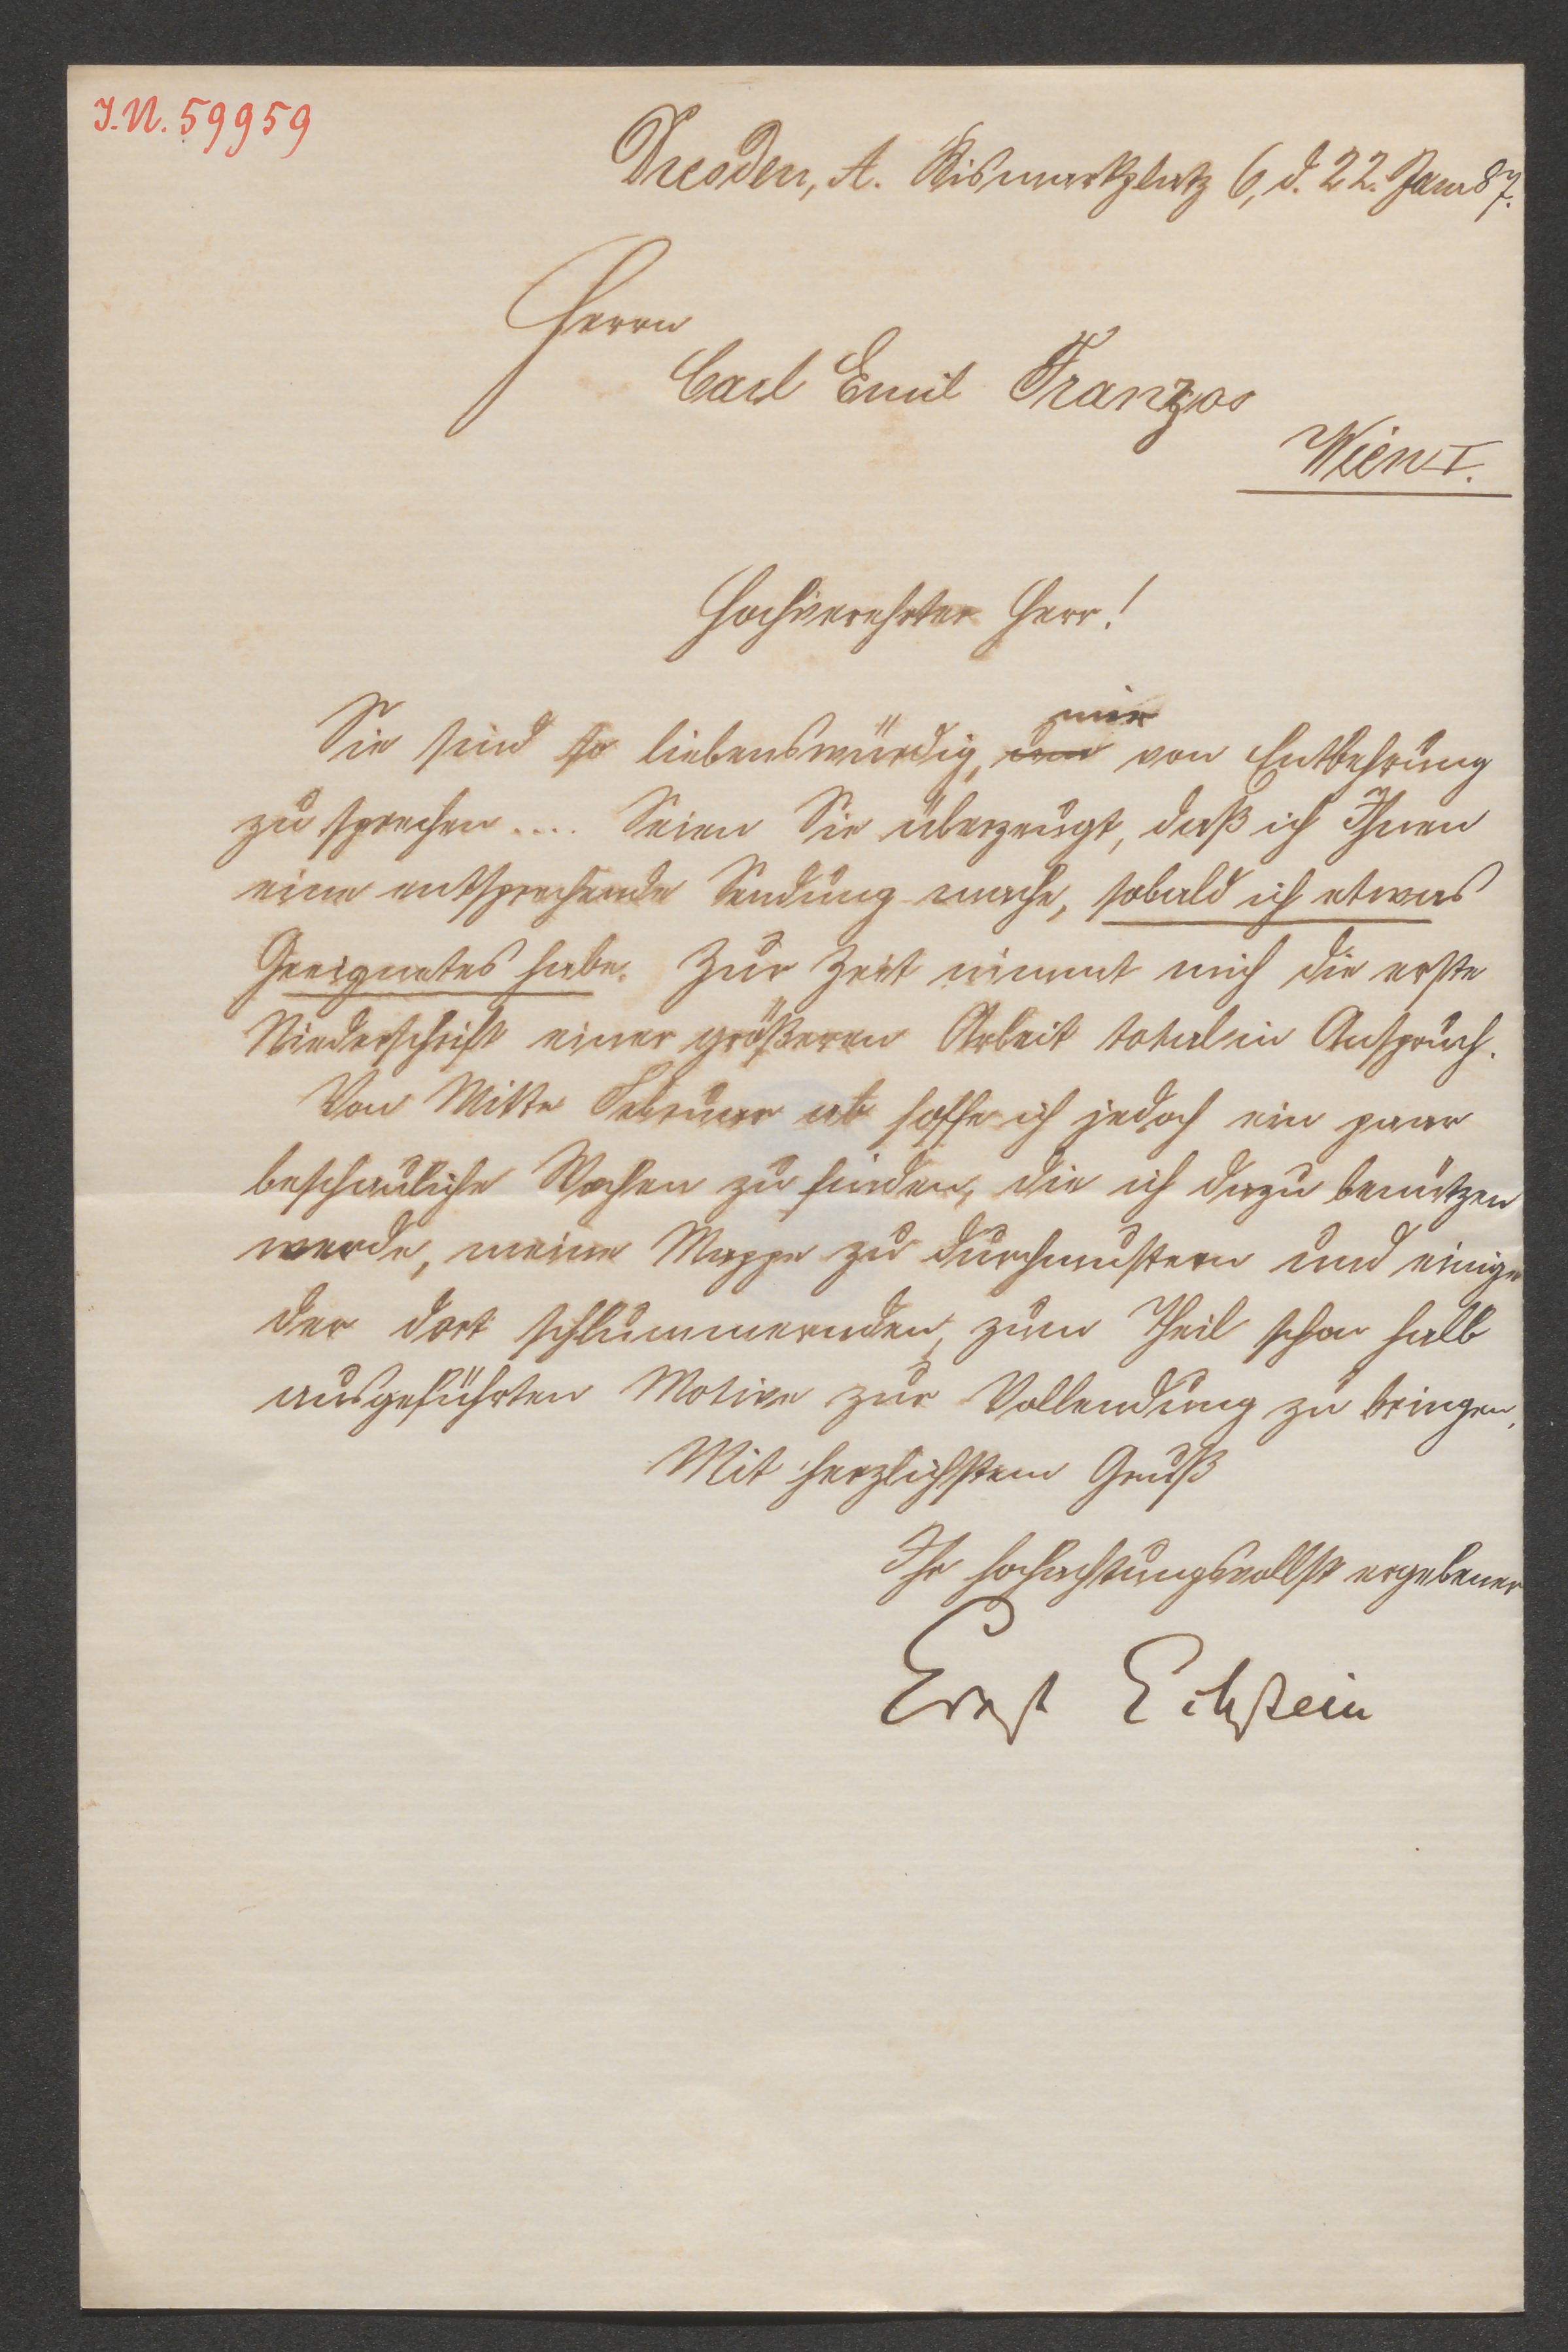 J.N. 59959
Dresden, A. Bismarkplatz 6, d. 22. Jan 87.
Herrn
Carl Emil Franzos
Wien I.
Hochverehrter Herr!
mir
Sie sind so liebenswürdig, von Entbehrung
zu sprechen.... Seien Sie überzeugt, daß ich Ihnen
eine entsprechende Sendung mache, sobald ich etwas
Geeignetes habe. Zur Zeit nimmt mich die erste
Niederschrift einer größeren Arbeit total in Anspruch.
Von Mitte Februar ab hoffe ich jedoch ein paar
beschauliche Wochen zu finden, die ich dazu benützen
werde, meine Mappe zu durchmustern und einige
der dort schlummernden, zum Theil schon halb
ausgeführten Motive zur Vollendung zu bringen.
Mit herzlichstem Gruß
Ihr hochachtungsvollst ergebener
Ernst Eckstein